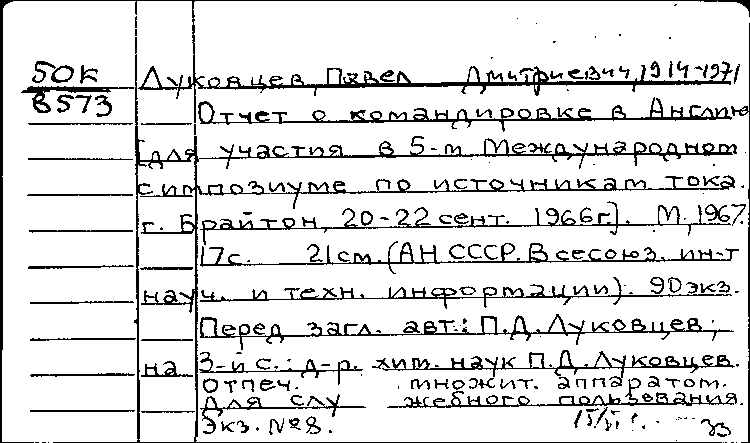 50К Луковцев, Павел Дмитриевич, 1914-1971
В573
Отчет о командировке в Англию
[для участия в 5-м Международном
симпозиуме по источникам тока.
г. Брайтон, 20-22 сент. 1966г]. М, 1967.
17с. 21см. (АН СССР. Всесоюз. ин-т
науч. и техн. информации). 90экз.
Перед загл. авт.: П.Д. Луковцев;
на 3-й с.: д-р. хим. наук П.Д. Луковцев.
Отпеч. множит. аппаратом.
Для служебного пользования.
Экз. №8.